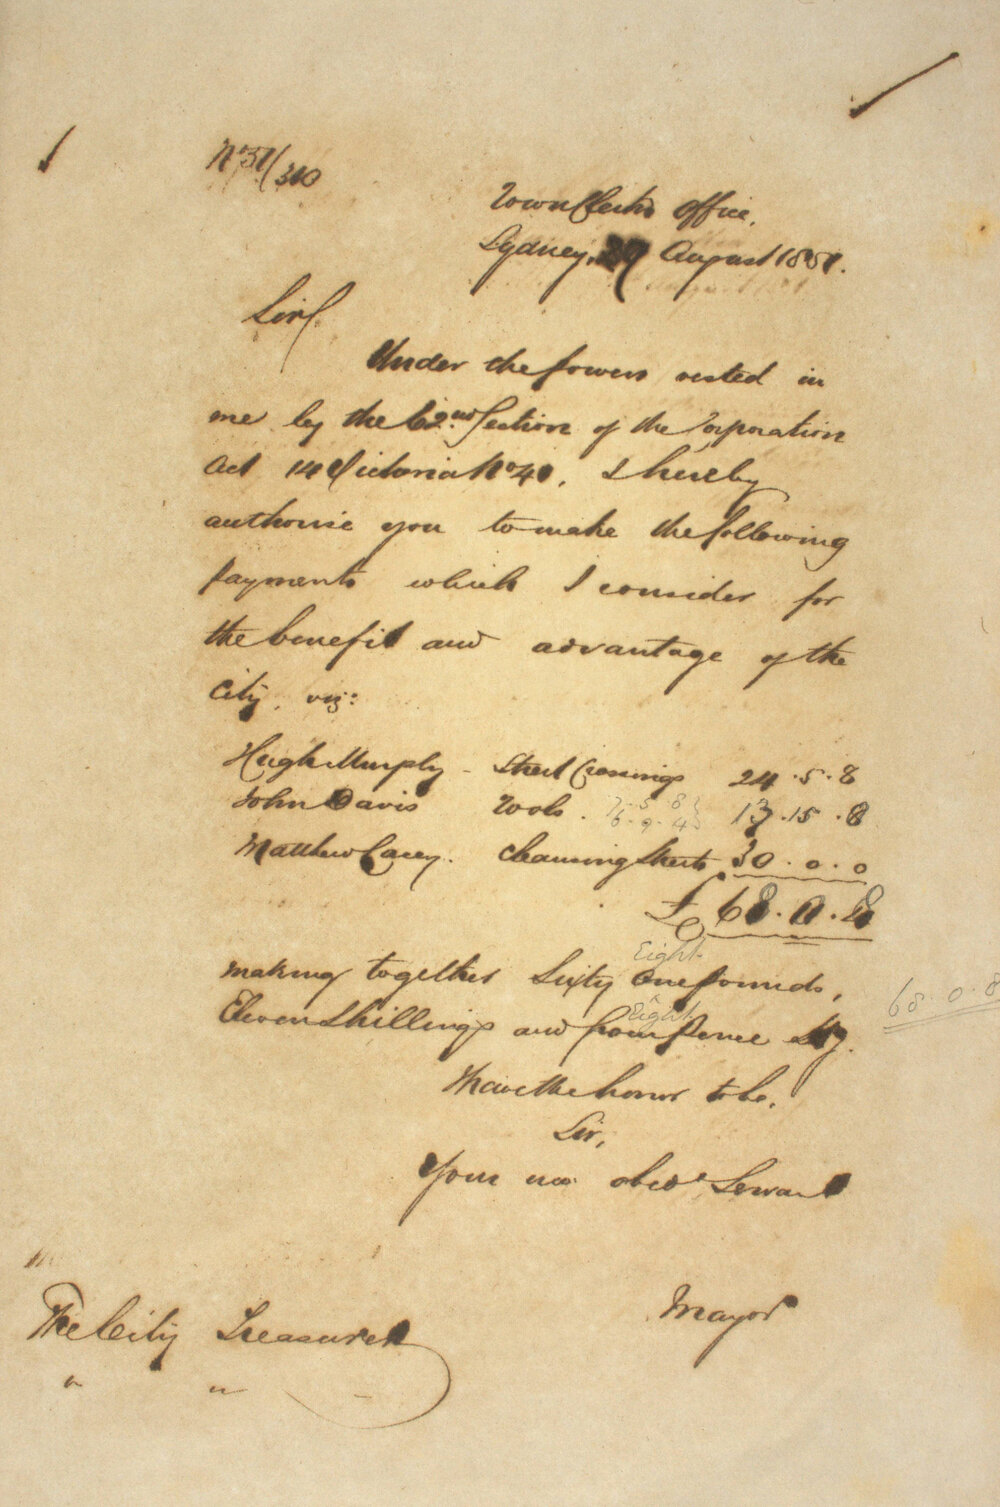 No 51/310
Town Clerk's Office,
Sydney, 29 August 1851.
Sir,
Under the powers vested in
me by the 62nd Section of the Corporation
Act 14 Victoria No 41, I hereby
authorise you to make the following
payments which I consider for
the benefit and advantage of the
City, viz:
Hugh Murphy - Street Crossings 24.5.8
John Davis Tools. 7.5.8 } 13.15.8
6.9.4 }
Matthew Casey. Cleansing Streets 30.0.0
£68.0.8
Eight
making together Sixty One pounds, 68.0.8
Eight
Eleven Shillings and four Pence Stg.
I have the honor to be,
Sir,
Your mo obedt Servant
Mayor
The City Treasurer
" "